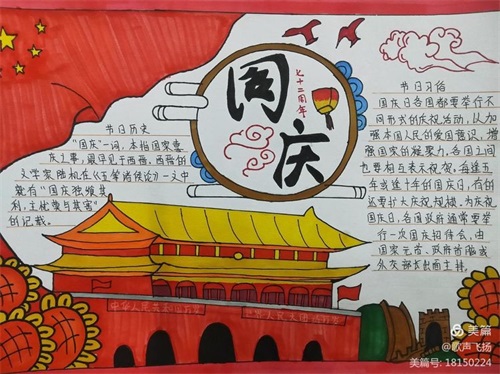 七十二周年
同庆
节日历史
"国庆"一词,本指国家喜
庆之事,最早见于西晋。西晋的
文学家陆机在《五等诸侯论》一文中
就有"国庆独飨其
利,主忧莫与其害"
的记载。
节日习俗
国庆日各国都要举行不
同形式的庆祝活动,以加
强本国人民的爱国意识,增
强国家的凝聚力。各国之间
也要相互表示祝贺。每逢五
年或逢十年的国庆日,有的
还要扩大庆祝规模。为庆祝
国庆日,各国政府通常要举
行一次国庆招待会,由
国家元首、政府首脑或
外交部长出面主持。
中华人民共和国万岁
世界人民大团结万岁
美篇
@歌声飞扬
美篇号: 18150224